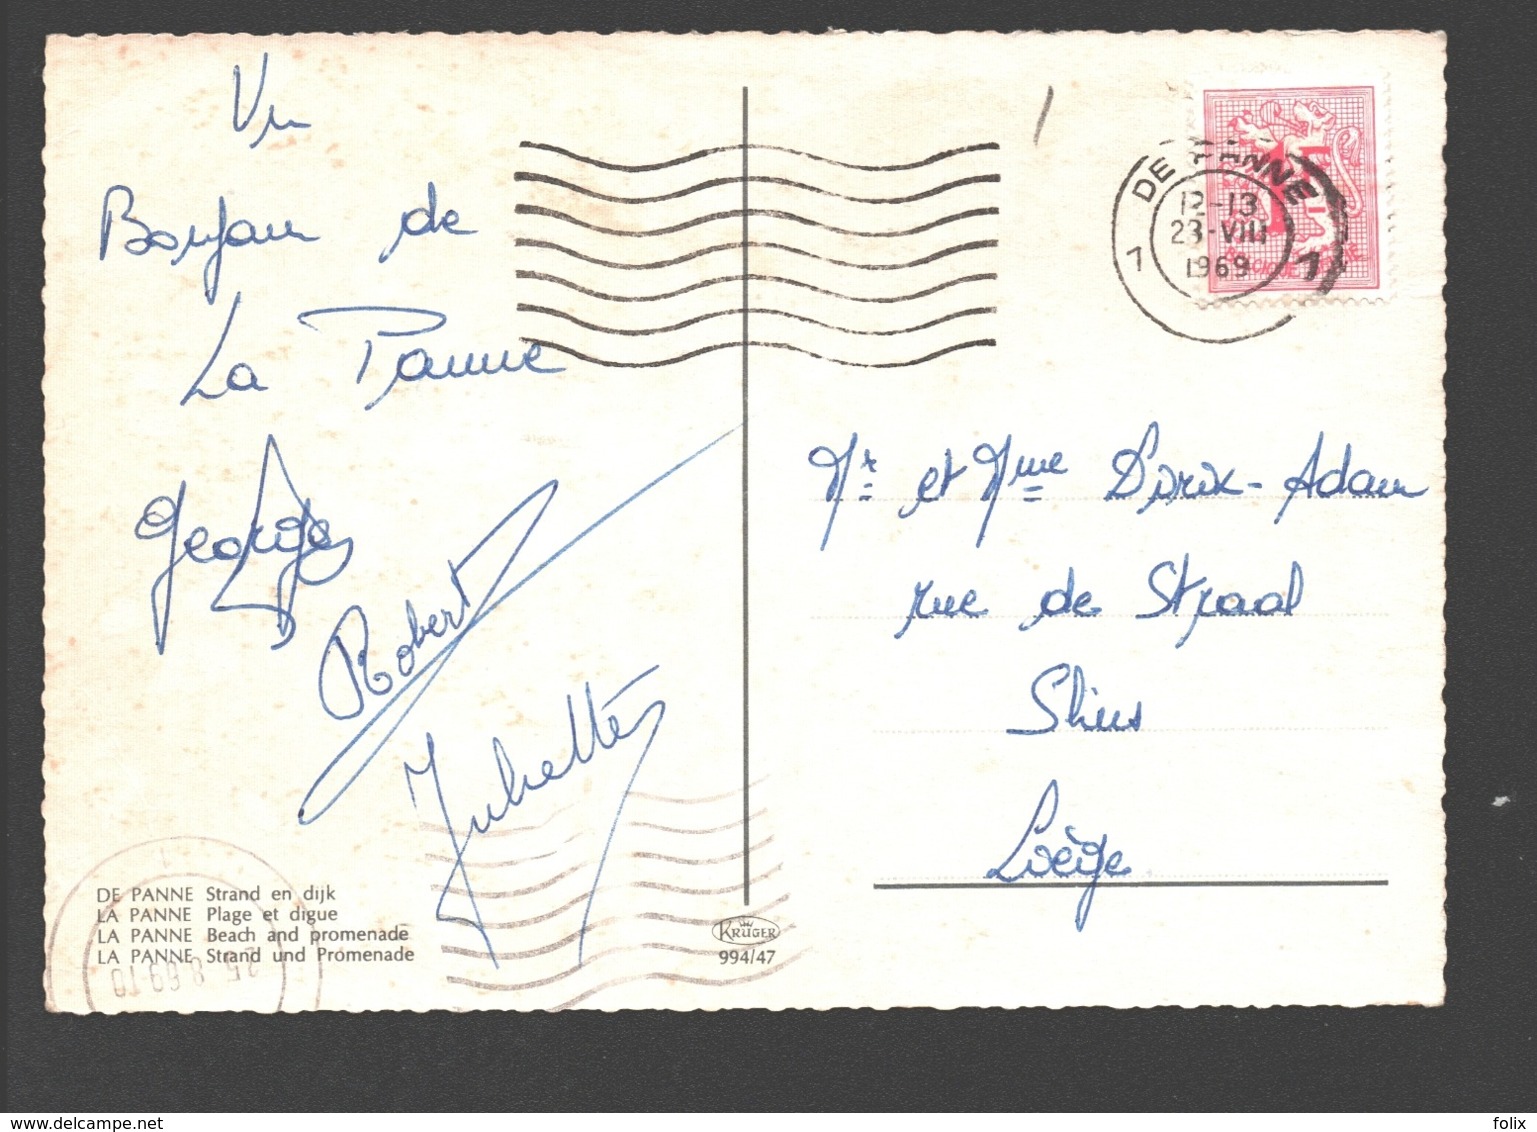 Un
Bonjour de
La Panne
Georges
Robert
Juliette
DE PANNE Strand en dijk
LA PANNE Plage et digue
LA PANNE Beach and promenade
LA PANNE Strand und Promenade
KRÜGER
994/47
DE PANNE
12-13
23-VIII
1969
1 1
Mr et Mme Dirix-Adam
rue de Straal
Slins
Liège
felix